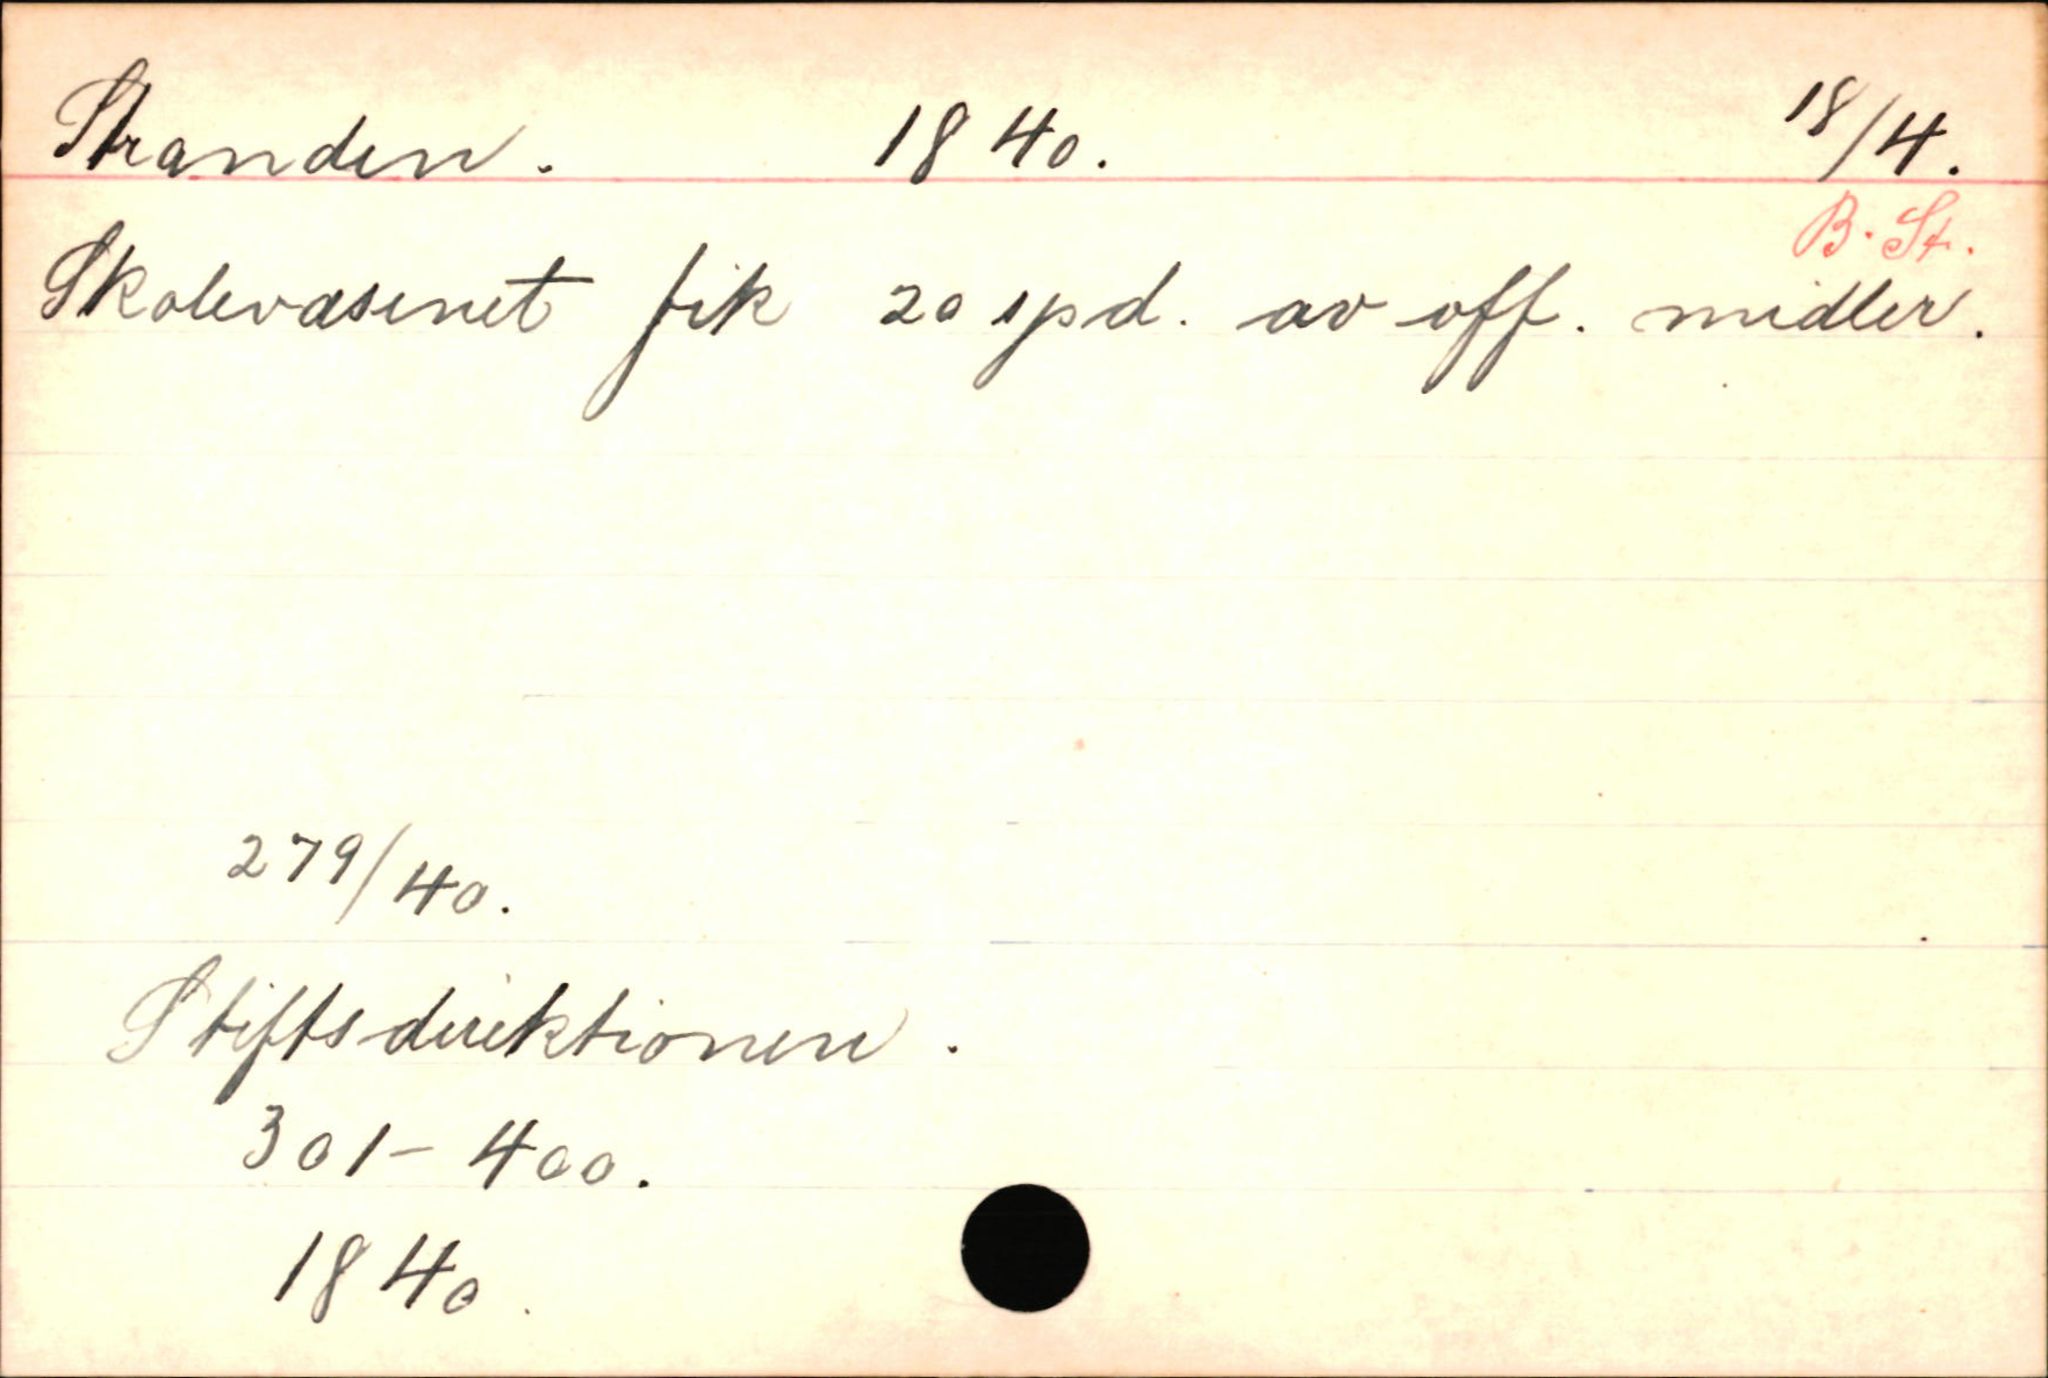 Stranden. 1840. 18/4.
B. St.
Skolevæsenet fik 20 spd. av off. midler.
279/40.
Stiftsdirektionen.
301-400.
1840.